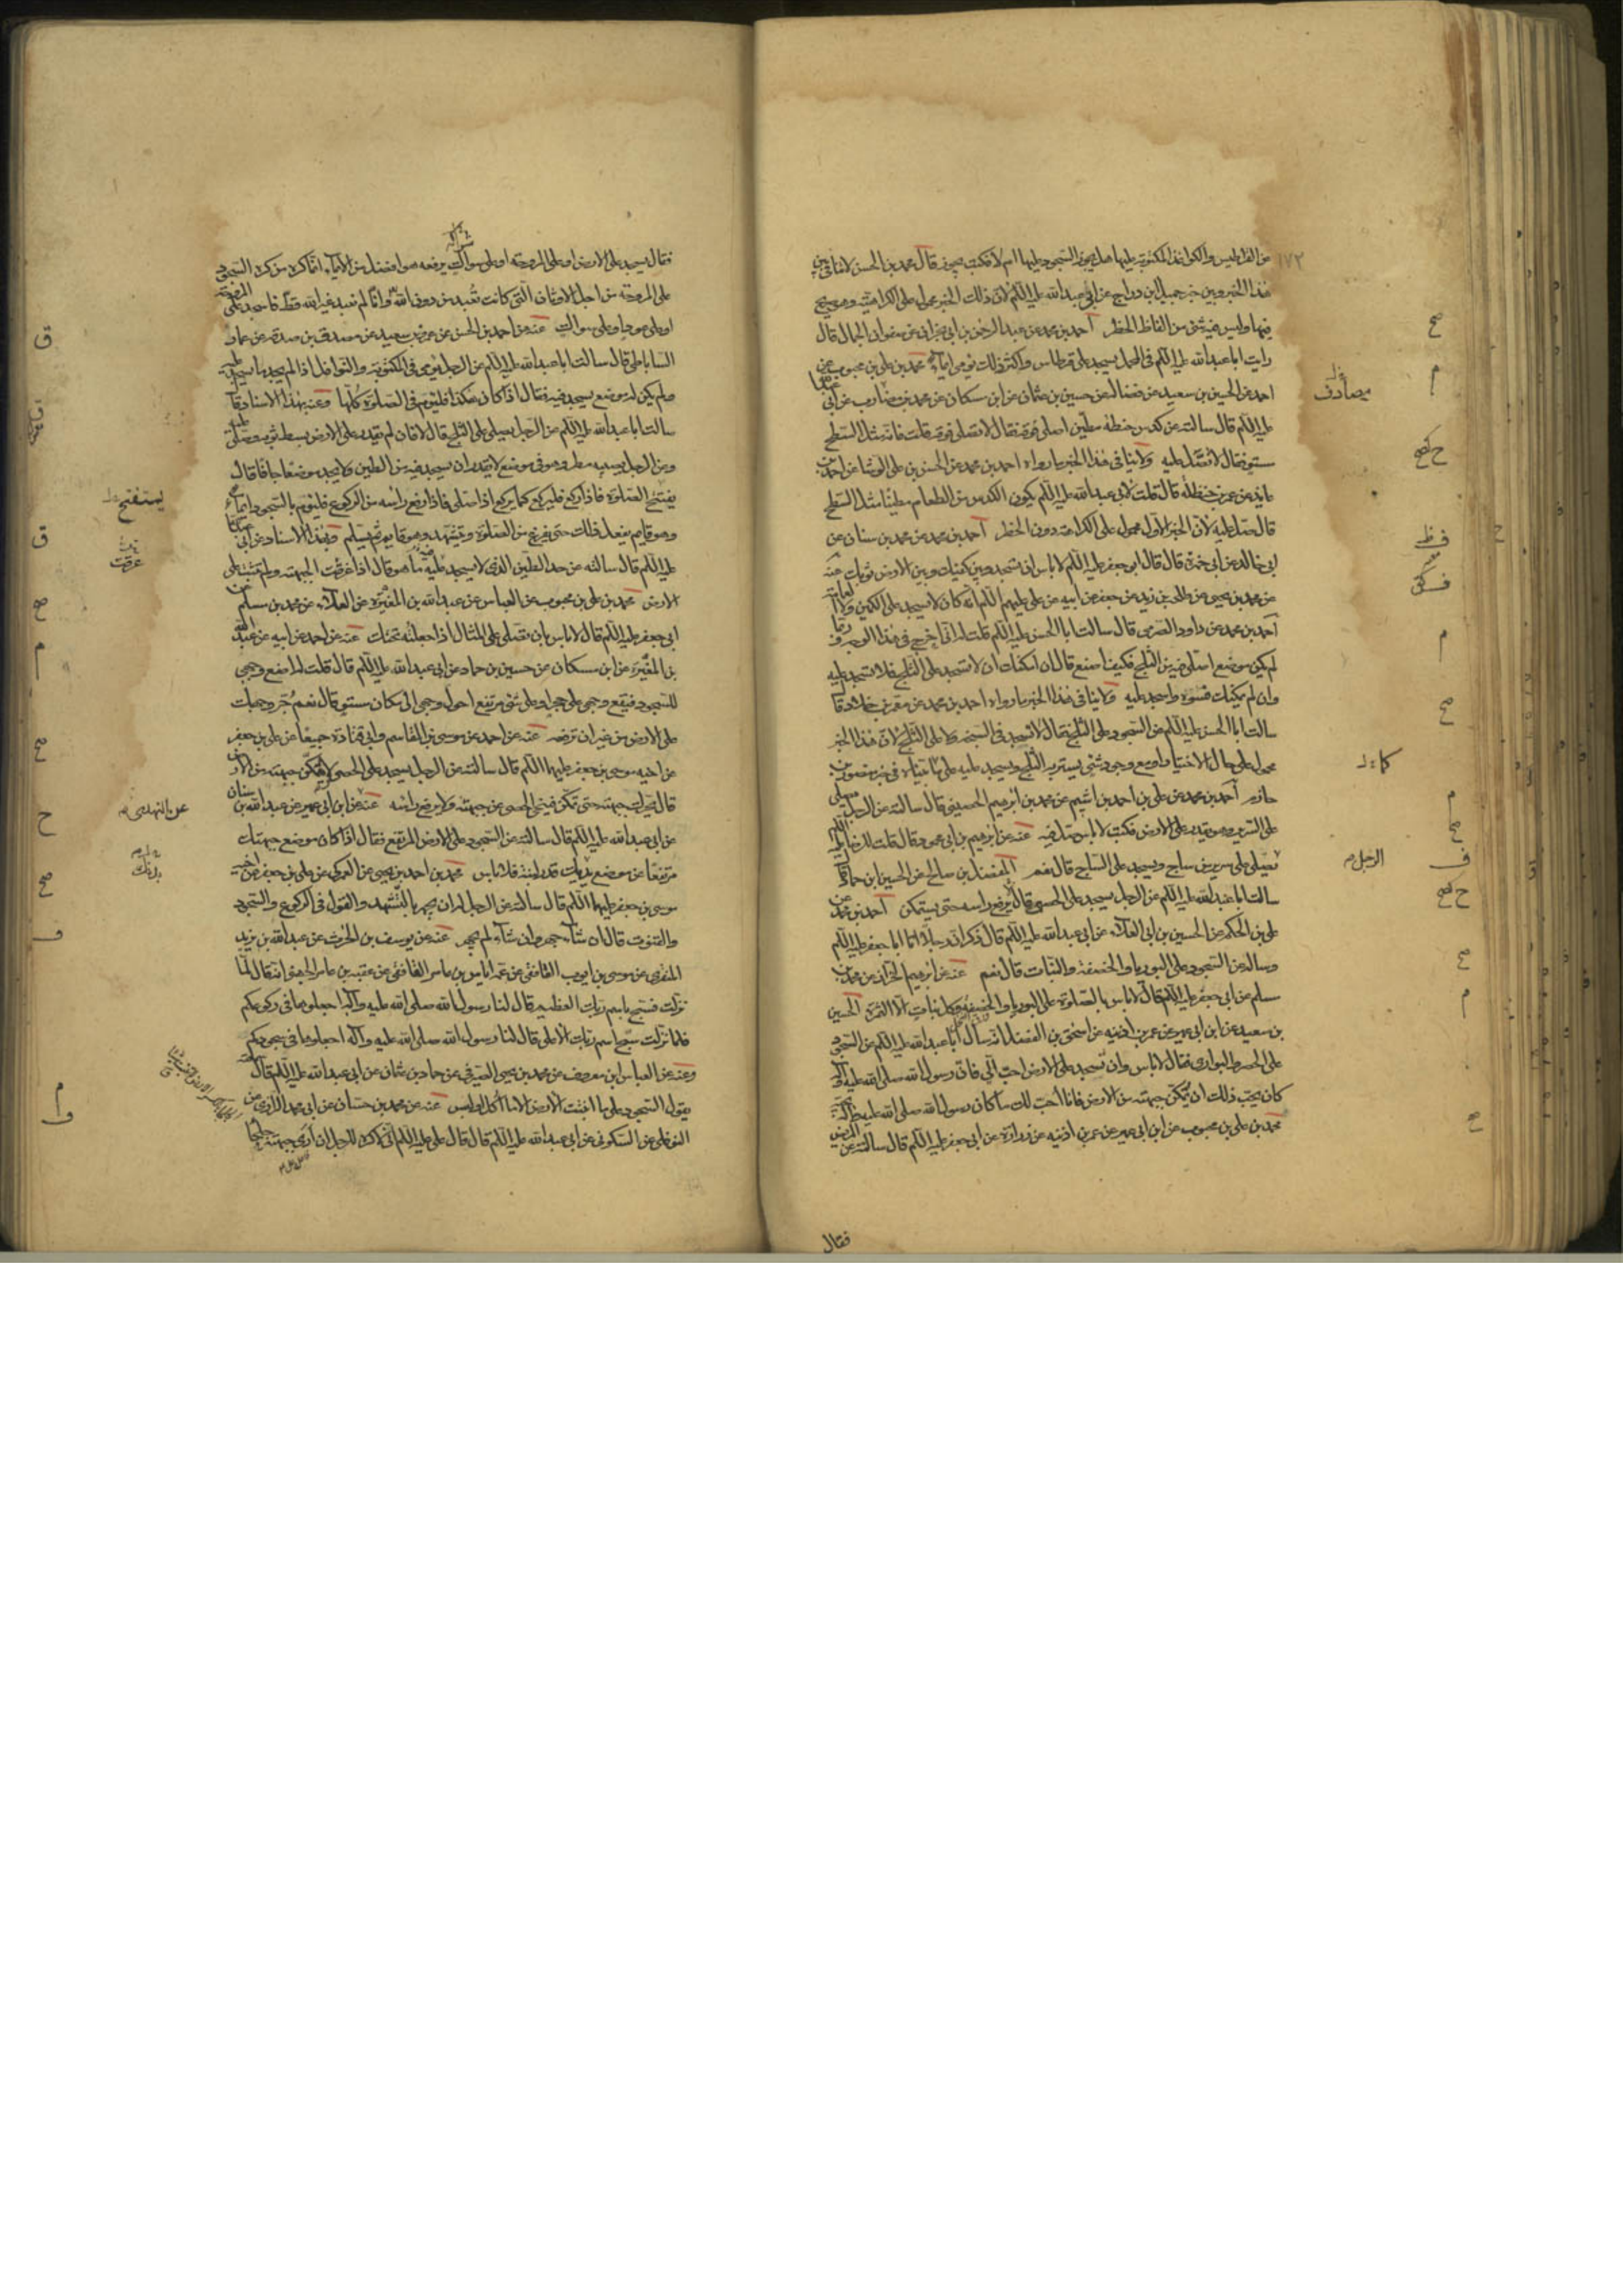 ١٧٢
من القراطيس والكواغذ المكتوبة عليها هل يجوز السجود عليها ام لا فكتب يجوز قال محمد بن الحسن لا تنافى بين
هذا الخبر وبين خبر جميل بن دراج عن ابى عبدالله عليه السلم لان ذلك الخبر محمول على الكراهية وهو صريح
فيها وليس فيه شئ من الفاظ الحظر احمد بن محمد عن عبد الرحمن بن ابى نجران عن صفوان الجمال قال
رايت ابا عبدالله عليه السلم فى المحمل يسجد على قرطاس واكثر ذلك يومى ايماء محمد بن على بن محبوب عن
احمد عن الحسين بن سعيد عن فضالة عن حسين بن عثمان عن ابن مسكان عن محمد بن مضارب عن ابى عبدالله
عليه السلم قال سالته عن كدس حنطة مطين اصلى فوقه فقال لا تصل فوقه قلت فانه مثل السطح
مستو فقال لا تصل عليه ولا ينافى هذا الخبر ما رواه احمد بن محمد عن الحسن بن على الوشا عن احمد بن
عايذ عن عمر بن حنظلة قال قلت لابى عبدالله عليه السلم يكون الكدس من الطعام مطينا مثل السطح
قال صل عليه لان الخبر الاول محمول على الكراهة دون الحظر احمد بن محمد عن محمد بن سنان عن
ابى خالد عن ابى حمزة قال قال ابو جعفر عليه السلم لا باس ان تسجد وبين كفيك وبين الارض ثوبك عنه
عن محمد بن يحيى عن طلحة بن زيد عن جعفر عن ابيه عن على عليهم السلم انه كان لا يسجد على الكمين ولا العمامة
احمد بن محمد عن داود الصرمى قال سالت ابا الحسن عليه السلم قلت له انى اخرج فى هذا الوجه وربما
لم يكن موضع اصلى فيه من الثلج فكيف اصنع قال ان امكنك ان لا تسجد على الثلج فلا تسجد عليه
وان لم يمكنك فسوه واسجد عليه ولا ينافى هذا الخبر ما رواه احمد بن محمد عن معمر بن خلاد قال
سالت ابا الحسن عليه السلم عن السجود على الثلج فقال لا تسجد فى السبخة ولا على الثلج لان هذا الخبر
محمول على حال الاختيار ومع وجود شئ يستر به الثلج ويسجد عليه على ما بيناه فى خبر منصور بن
حازم احمد بن محمد عن على بن احمد بن اشيم عن محمد بن ابرهيم الحصينى قال سالته عن الرجل يصلى
على السرير وهو يقدر على الارض فكتب لا باس صل فيه عنه عن ابرهيم بن ابى محمود قال قلت للرضا عليه السلم
تصلى على سرير من ساج ويسجد على الساج قال نعم المفضل بن صالح عن الحسين بن حماد قال
سالت ابا عبدالله عليه السلم عن الرجل يسجد على الحصى قال يرفع راسه حتى يستمكن احمد بن محمد عن
على بن الحكم عن الحسين بن ابى العلاء عن ابى عبدالله عليه السلم قال ذكر ان رجلا اتى ابا جعفر عليه السلم
وساله عن السجود على البوريا والخصفة والنبات قال نعم عنه عن ابرهيم الخزاز عن محمد بن
مسلم عن ابى جعفر عليه السلم قال لا باس بالصلوة على البوريا والخصفة وكل نبات الا الثمرة الحسين
بن سعيد عن ابن ابى عمير عن عمر بن اذينه عن اسحق بن الفضل انه سال ابا عبدالله عليه السلم عن السجود
على الحصر والبوارى فقال لا باس وان تسجد على الارض احب الى فان رسول الله صلى الله عليه وآله
كان يحب ذلك ان يمكن جبهته من الارض فانا احب لك ما كان رسول الله صلى الله عليه وآله يحبه
محمد بن على بن محبوب عن ابن ابى عمير عن عمر بن اذينه عن زرارة عن ابى جعفر عليه السلم قال سالته عن المريض
فقال
مصادف
الرجل م
فقال يسجد على الارض او على المروحة او على سواك يرفعه هو افضل من الايماء انما كره من كره السجود
على المروحة من اجل الاوثان التى كانت تعبد من دون الله وانا لم نعبد غير الله قط فاسجد على المروحة
او على عود او على سواك عنه عن احمد بن الحسن عن عمرو بن سعيد عن مصدق بن صدقة عن عمار
الساباطى قال سالت ابا عبدالله عليه السلم عن الرجل يومى فى المكتوبة والنوافل اذا لم يجد ما يسجد عليه
ولم يكن له موضع يسجد فيه فقال اذا كان هكذا فليوم فى الصلوة كلها وعنه بهذا الاسناد قال
سالت ابا عبدالله عليه السلم عن الرجل يصلى على الثلج قال لا فان لم يقدر على الارض بسط ثوبه وصلى عليه
وعن الرجل يصيبه مطر وهو فى موضع لا يقدر ان يسجد فيه من الطين ولا يجد موضعا جافا قال
يفتتح الصلوة فاذا ركع فليركع كما يركع اذا صلى فاذا رفع راسه من الركوع فليوم بالسجود ايماء
وهو قايم يفعل ذلك حتى يفرغ من الصلوة ويتشهد وهو قايم ثم يسلم وبهذا الاسناد عن ابى عبدالله
عليه السلم قال سالته عن حد الطين الذى لا يسجد عليه ما هو قال اذا غرقت الجبهة ولم تثبت على
الارض محمد بن على بن محبوب عن العباس عن عبدالله بن المغيرة عن العلاء عن محمد بن مسلم عن
ابى جعفر عليه السلم قال لا باس بان تصلى على المثال اذا جعلته تحتك عنه عن احمد عن ابيه عن عبد الله
بن المغيرة عن ابن مسكان عن حسين بن حماد عن ابى عبدالله عليه السلم قال قلت له اضع وجهى
للسجود فيقع وجهى على حجر او على شئ مرتفع احول وجهى الى مكان مستو قال نعم جر وجهك
على الارض من غير ان ترفعه عنه عن احمد عن موسى بن القاسم وابى قتادة جميعا عن على بن جعفر
عن اخيه موسى بن جعفر عليهما السلم قال سالته عن الرجل يسجد على الحصى لا يمكن جبهته من الارض
قال يحرك جبهته حتى تمكن فينحى الحصى عن جبهته ولا يرفع راسه عنه عن ابن ابى عمير عن عبدالله بن سنان
عن ابى عبدالله عليه السلم قال سالته عن السجود على الارض المرتفع فقال اذا كان موضع جبهتك
مرتفعا عن موضع يديك قدر لبنة فلا باس محمد بن احمد بن يحيى عن العمركى عن على بن جعفر عن اخيه
موسى بن جعفر عليهما السلم قال سالته عن الرجل له ان يجهر بالتشهد والقول فى الركوع والسجود
والقنوت قال ان شاء جهر وان شاء لم يجهر عنه عن يوسف بن الحرث عن عبدالله بن يزيد
المنقرى عن موسى بن ايوب الغافقى عن عمه اياس بن عامر الغافقى عن عقبة بن عامر الجهنى انه قال لما
نزلت فسبح باسم ربك العظيم قال لنا رسول الله صلى الله عليه وآله اجعلوها فى ركوعكم
فلما نزلت سبح اسم ربك الاعلى قال لنا رسول الله صلى الله عليه وآله اجعلوها فى سجودكم
وعنه عن العباس ابن معروف عن محمد بن يحيى الصيرفى عن حماد بن عثمان عن ابى عبدالله عليه السلم قال سمعته
يقول السجود على ما انبتت الارض الا ما اكل او لبس عنه عن محمد بن حسان عن ابى محمد الرازى عن
النوفلى عن السكونى عن ابى عبدالله عليه السلم قال قال على عليه السلم انى لاكره للرجل ان ارى جبهته جلحا
يستفتح
غرقت
عن النهدى م
بدنك